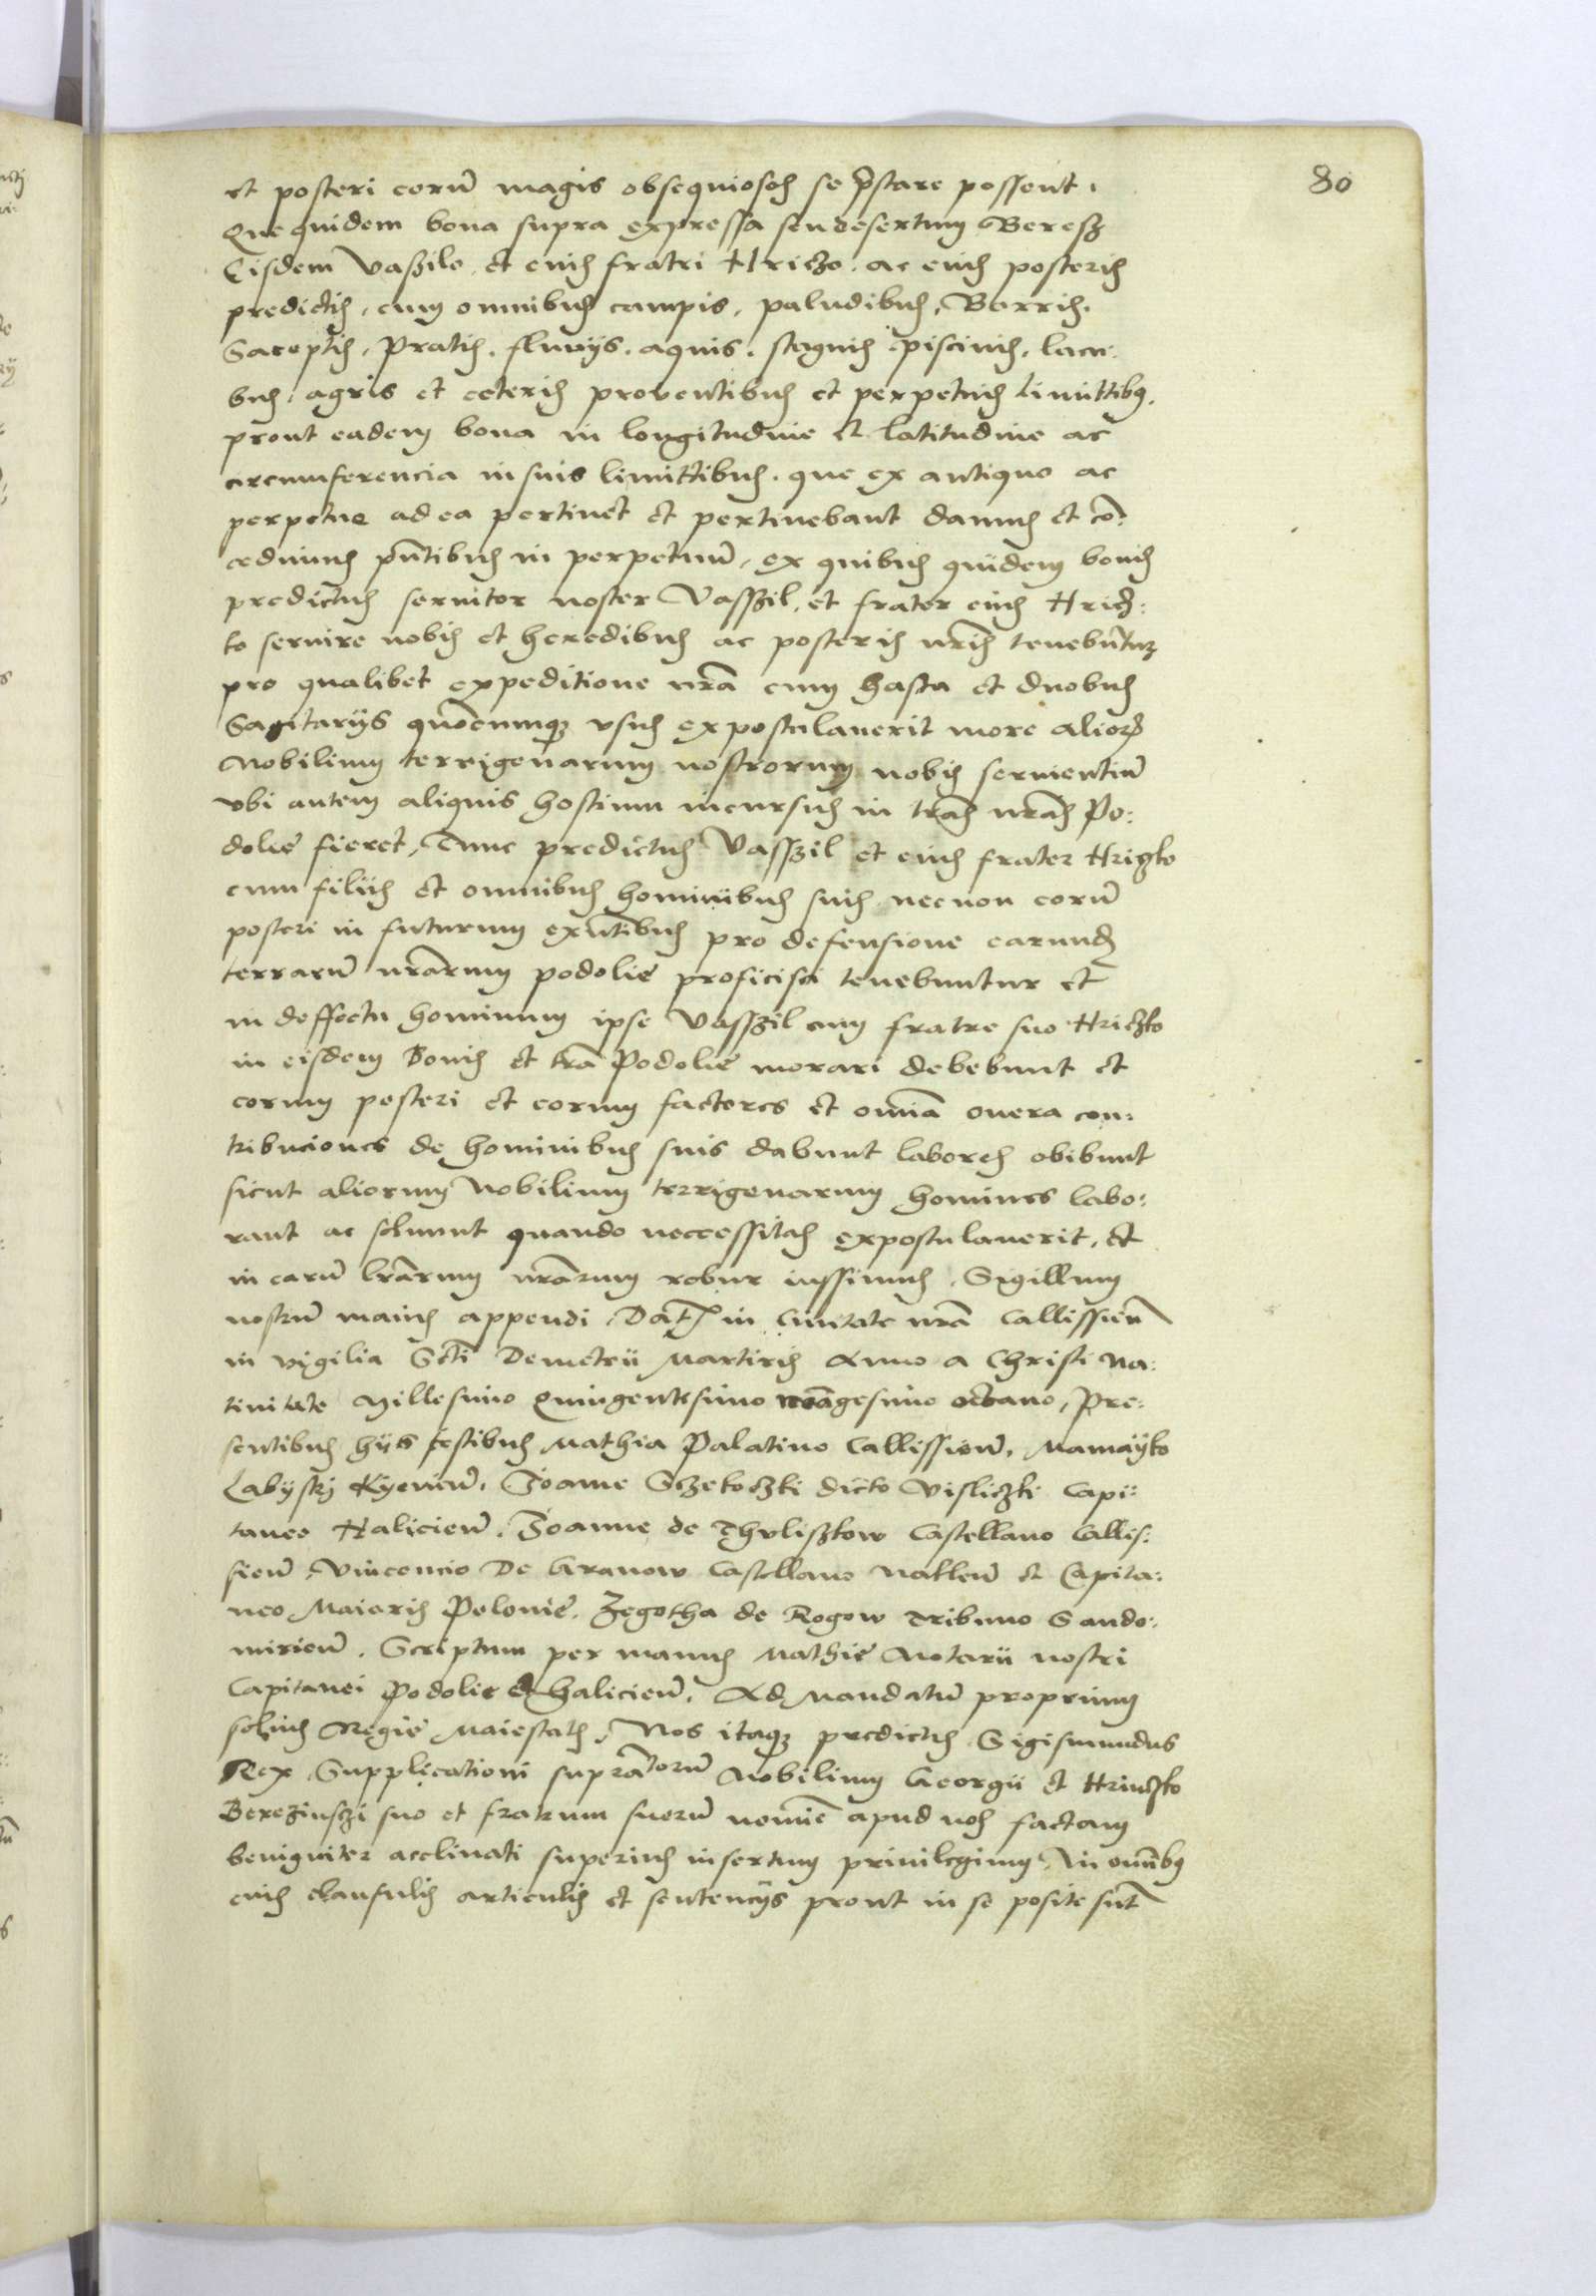 80
et posteri eorũ magis obsequiosos se p̃stare possent.
Que quidem bona supra expressa seu desertum Beresz
Eisdem Vaßilo et eius fratri Hriczo. ac eius posteris
predictis, cum omnibus campis, paludibus, Borris.
Saceptis, Pratis. fluvijs. aquis. stagnis piscinis, lacu:
bus, agris et ceteris proventibus et perpetuis limittibq.
prout eadem bona in longitudine et latitudine ac
circumferencia in suis limittibus. que ex antiquo ac
perpetuo ad ea pertinet et pertinebant damus et cõ:
cedimus pñtibus in perpetuũ, ex quibus quidem bonis
predictus seruitor noster Vasszil, et frater eius Hricz:
ko seruire nobis et heredibus ac posteris nr̃is tenebũtur
pro qualibet expeditione nr̃a cum hasta et duobus
Sagitarijs quõcumqz vsus expostulauerit more alior̃
Nobilium terrigenarum nostrorum nobis seruientiũ
vbi autem aliquis hostium incursus in tr̃as nr̃as Po:
dolie fieret, tunc predictus Vasszil et eius frater Hrizko
cum filijs et omnibus hominibus suis necnon eorũ
posteri in futurum exñtibus pro defensione earund
terrarũ nr̃arum podolie proficisci tenebuntur et
in deffectu hominum ipse Vasszil cum fratre suo Hriczko
in eisdem Bonis et tr̃a Podolie morari debebunt et
eorum posteri et eorum factores et omĩa onera con:
tribuciones de hominibus suis dabunt labores obibunt
sicut aliorum Nobilium terrigenarum homines labo:
rant ac soluunt quando neccessitas expostulauerit, Et
in earũ lr̃arum nr̃arum robur iussimus Sigillum
nostrũ maius appendi. Dat̃ in Ciuitate nr̃a Callissień
in vigilia Scti Demetrii Martiris Anno a Christi Na:
tiuitate Millesimo Quingentesimo octauo, Pre:
sentibus hijs testibus Mathia Palatino Callissień, Mamayko
Labyski Kyeuień, Joanne Sczekoczki dicto Visliczki Capi:
taneo Halicień, Joanne de Thulißkow Castellano Callis:
sień, Vincencio De Granow Castellano Nakleń et Capita:
neo Maioris Polonie, Zegotha de Rogow Tribuno Sando:
mirień. Scriptum per manus Mathie Notarii nostri
Capitanei Podolie et Halicień. Ad Mandatũ proprium
solius Regie Maiestatis, Nos itaqz predictus Sigismundus
Rex Supplicationi supratorũ Nobilium Georgii et Hrinczko
Berezinszi suo et fratrum suorũ nomine apud nos factam
benigniter acclinati superius insertum priuilegium, In omñbq
eius clausulis articulis et sentencijs prout in se posite sũt